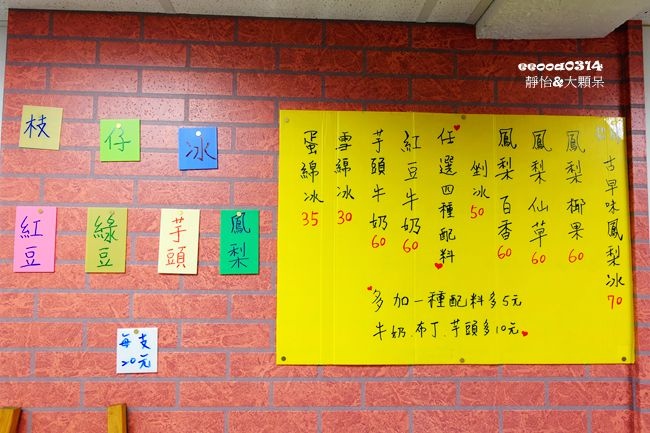 eeooa0314
靜怡&大顆呆
枝
仔
冰
紅豆
綠豆
芋頭
鳳梨
每支
20元
古早味鳳梨冰 70
鳳梨椰果 60
鳳梨仙草 60
鳳梨百香 60
剉冰 50
任選四種配料
紅豆牛奶 60
芋頭牛奶 60
雪綿冰 30
蛋綿冰 35
多加一種配料多5元
牛奶、布丁、芋頭多10元